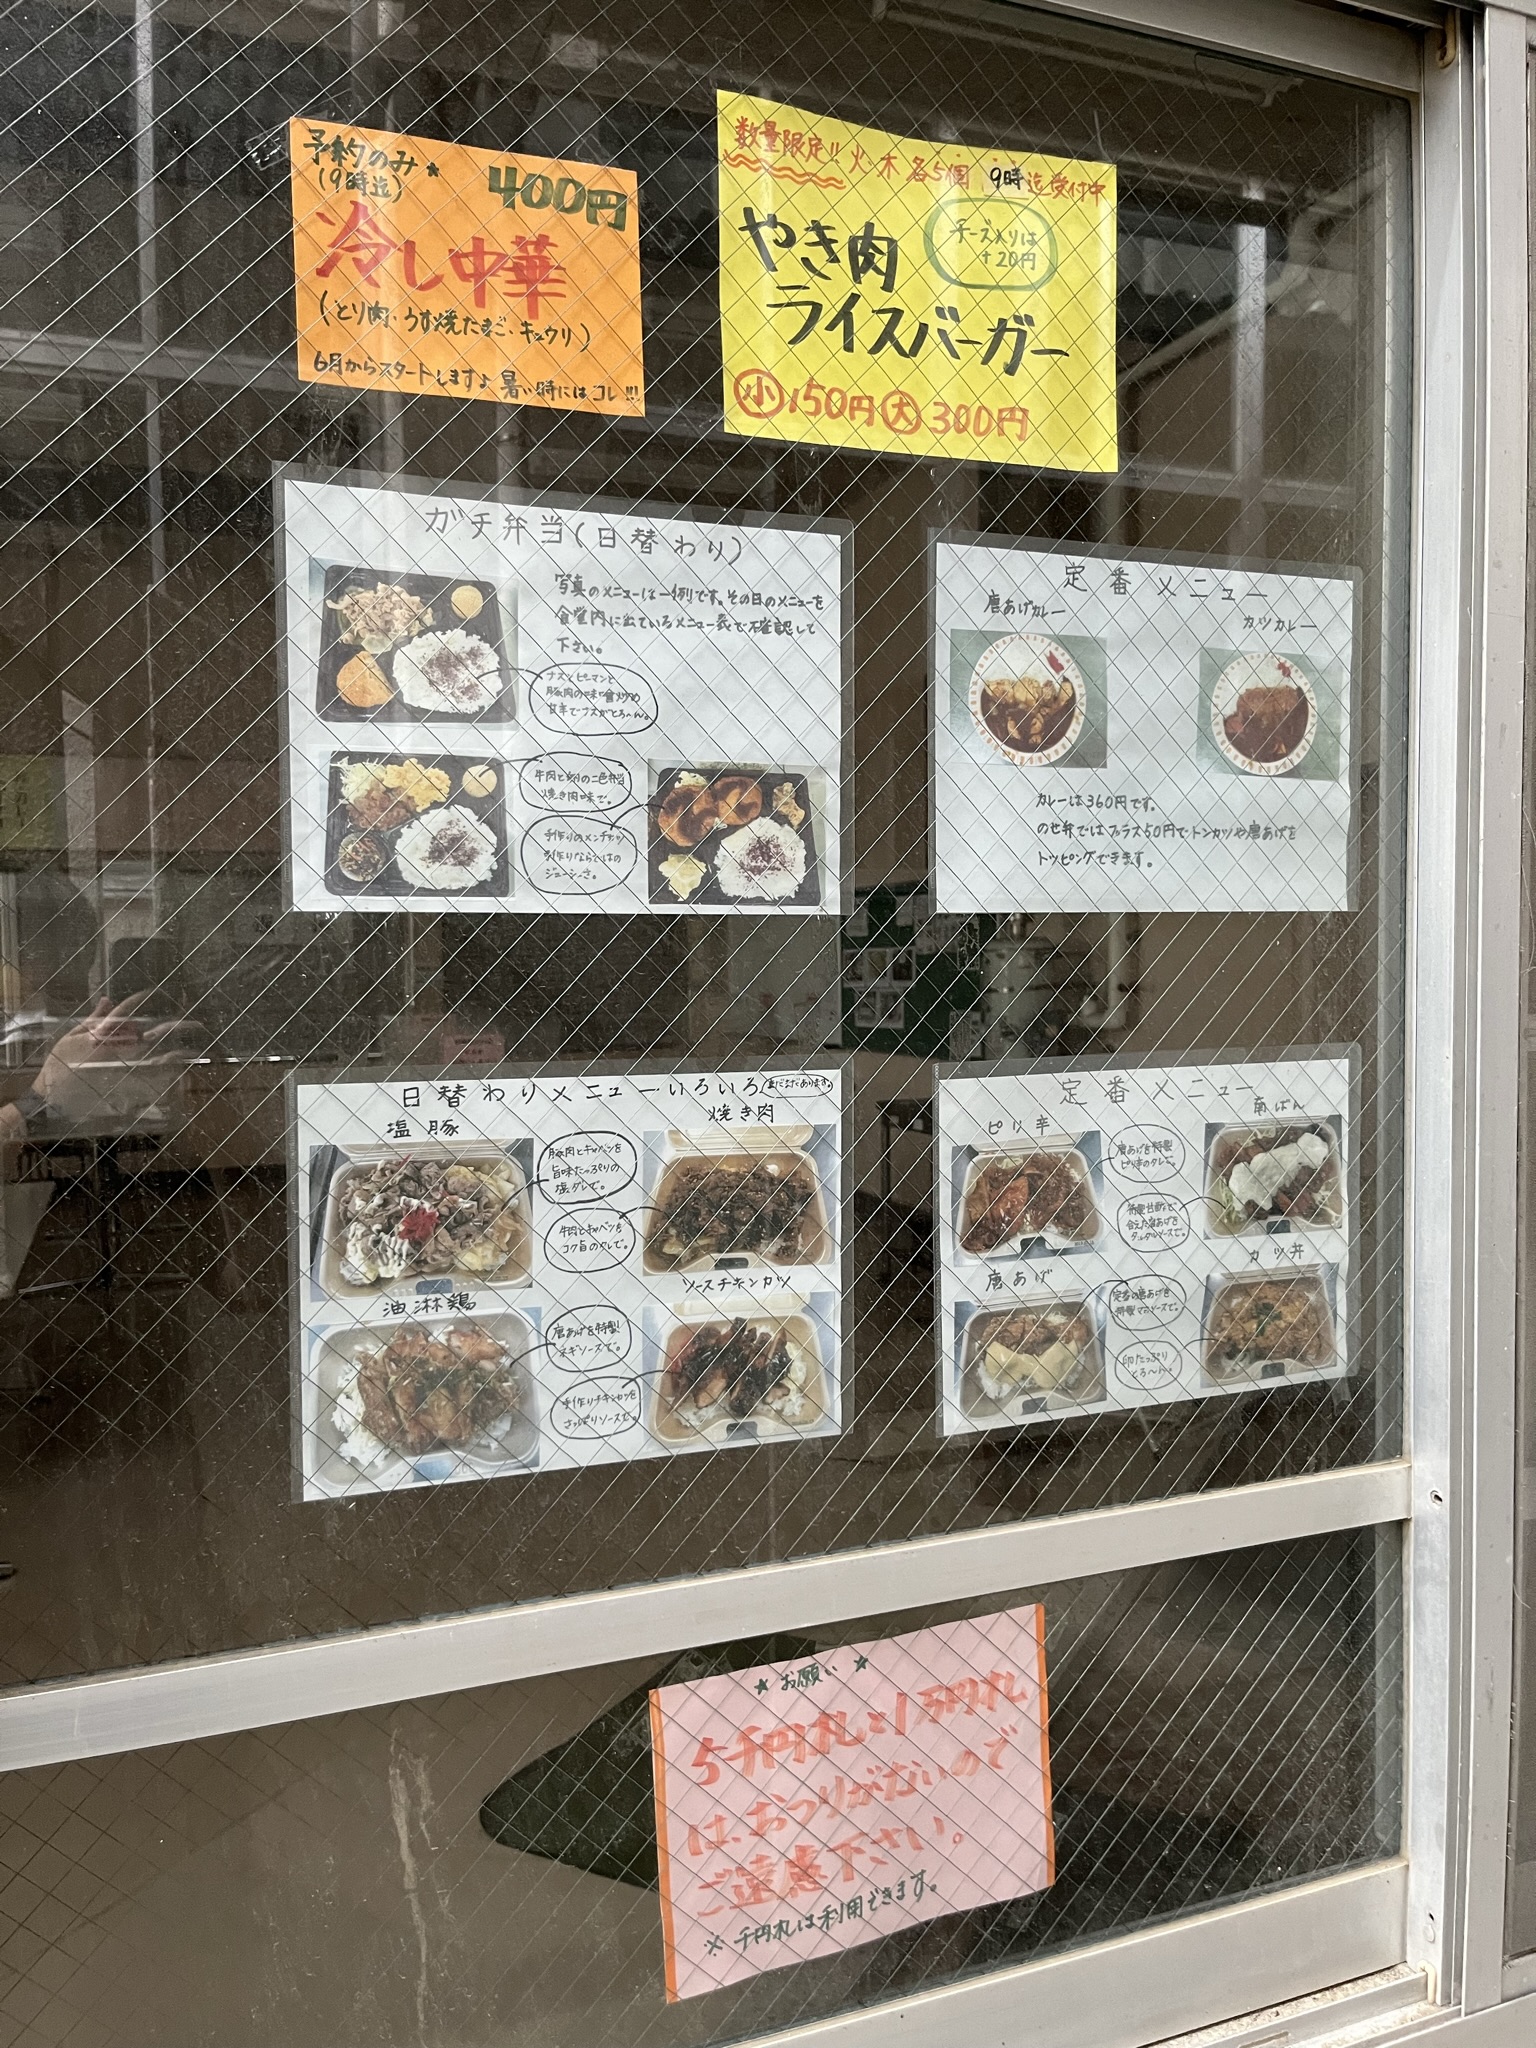 予約のみ★
(9時迄)
400円
冷し中華
(とり肉、うす焼たまご、キュウリ)
6月からスタートします♪ 暑い時にはコレ!!!
数量限定!! 火・木 各5個 9時迄受付中
やき肉
チーズ入りは
+20円
ライスバーガー
小 150円 大 300円
ガチ弁当(日替わり)
写真のメニューは一例です。その日のメニューを
食堂内に出ているメニュー表で確認して
下さい。
ナスとピーマンと
豚肉の味噌炒め
甘辛でナスがとろ〜ん。
牛肉と卵の二色弁当
焼き肉味で。
手作りのメンチカツ
手作りならではの
ジューシーさ。
定番メニュー
唐あげカレー
カツカレー
カレーは360円です。
のせ弁ではプラス50円でトンカツや唐あげを
トッピングできます。
日替わりメニューいろいろ
まだまだあります。
塩豚
焼き肉
豚肉とキャベツを
旨味たっぷりの
塩ダレで。
牛肉とキャベツを
コク旨のタレで。
油淋鶏
ソースチキンカツ
唐あげを特製
ネギソースで。
手作りチキンカツを
さっぱりソースで。
定番メニュー
ピリ辛
南ばん
唐あげを特製
ピリ辛のタレで。
特製甘酢で
和えた唐あげを
タルタルソースで。
唐あげ
カツ丼
定番の唐あげを
特製マヨソースで。
卵たっぷり
とろ〜ん。
★ お願い ★
5千円札と1万円札
は、おつりがないので
ご遠慮下さい。
※千円札は利用できます。